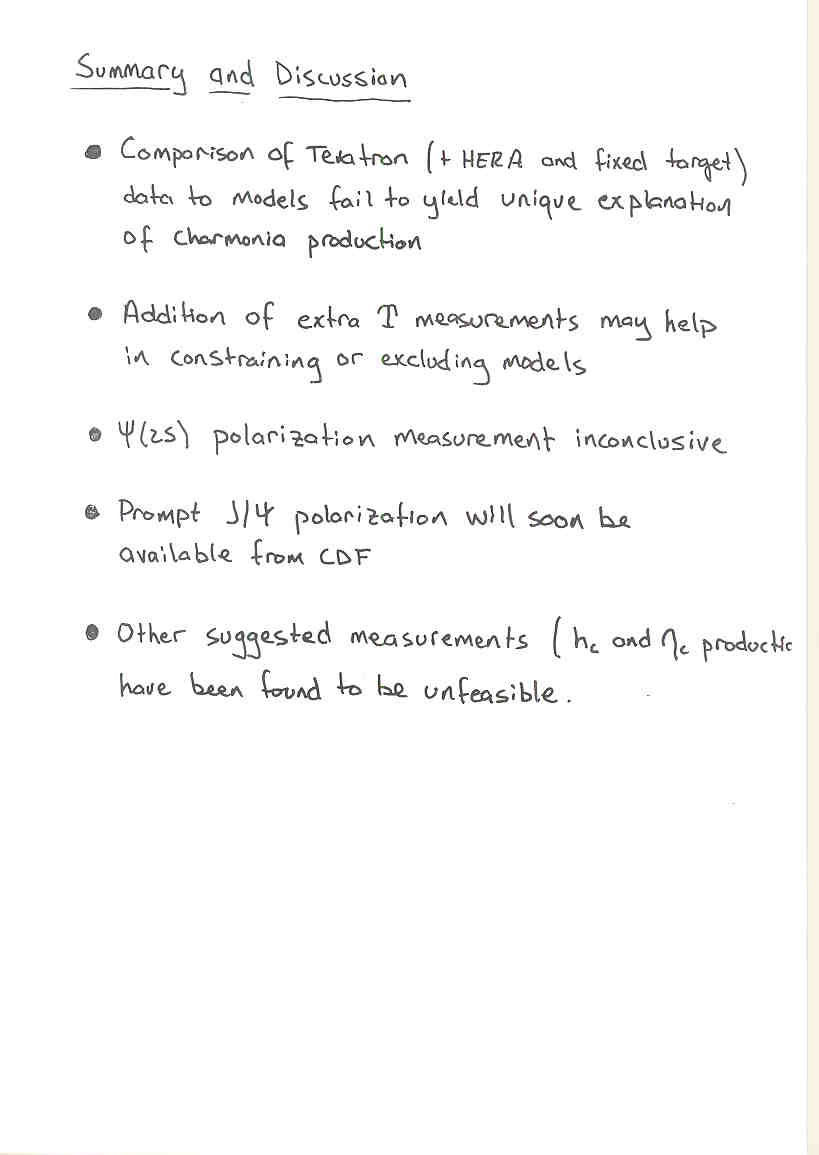 Summary and Discussion
• Comparison of Tevatron (+ HERA and fixed target)
data to models fail to yield unique explanation
of charmonia production
• Addition of extra ϒ measurements may help
in constraining or excluding models
• Ψ(2S) polarization measurement inconclusive
• Prompt J/Ψ polarization will soon be
available from CDF
• Other suggested measurements (h_c and η_c productic
have been found to be unfeasible.